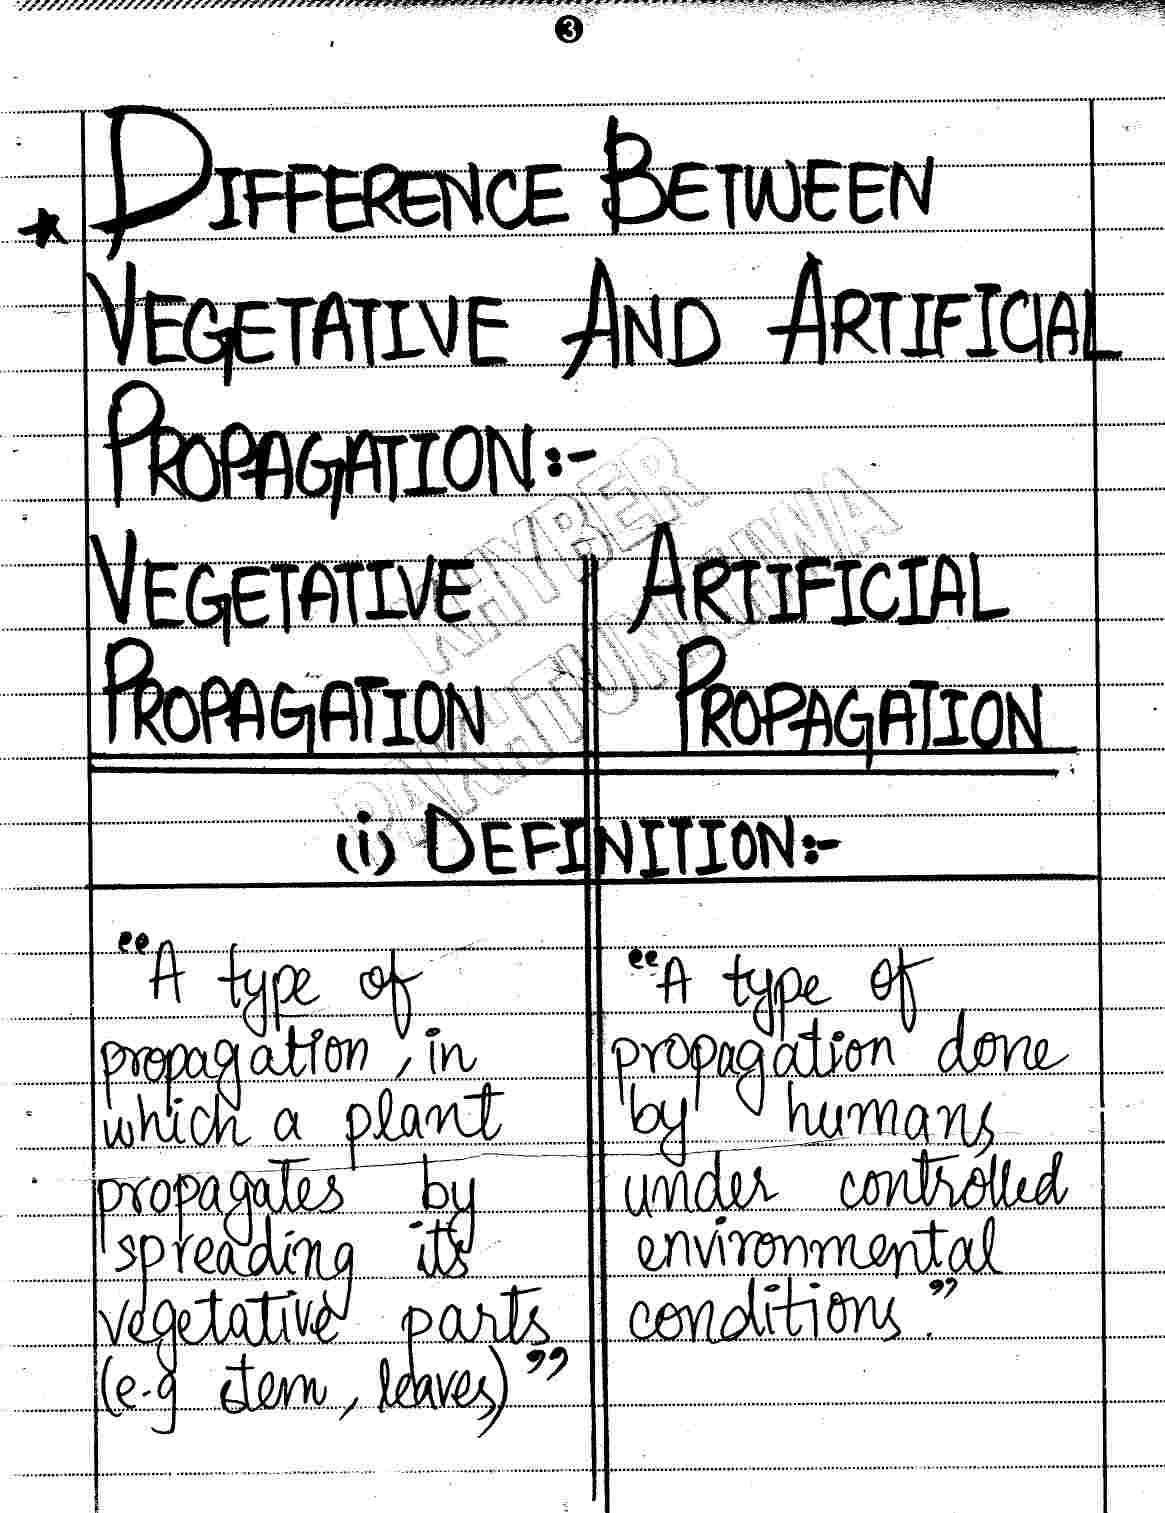 3
* DIFFERENCE BETWEEN
VEGETATIVE AND ARTIFICIAL
PROPAGATION:-
KHYBER
PAKHTUNKHWA
VEGETATIVE
PROPAGATION
ARTIFICIAL
PROPAGATION
(i) DEFINITION:-
“A type of
propagation, in
which a plant
propagates by
spreading its
vegetative parts
(e.g stem, leaves)”
“A type of
propagation done
by humans
under controlled
environmental
conditions.”